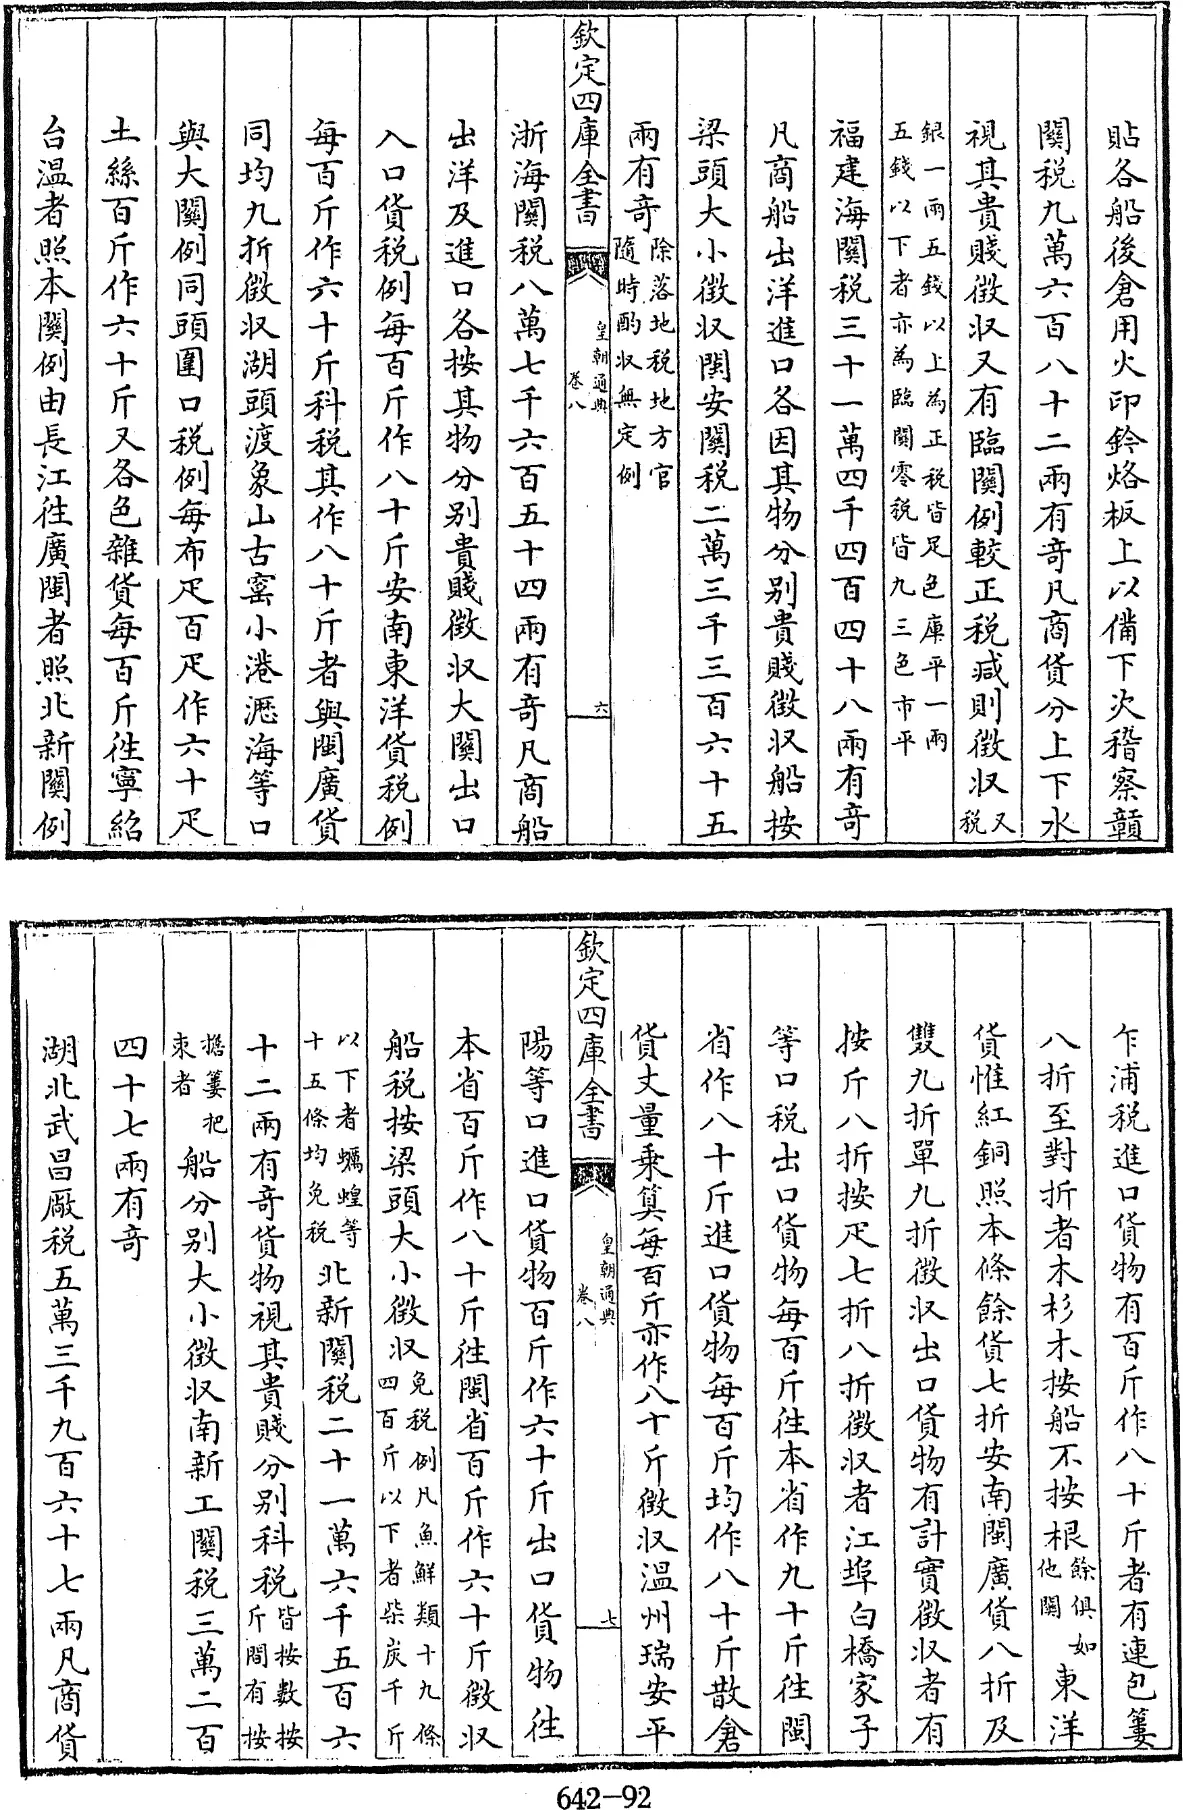 貼各船後倉用火印鈐烙板上以備下次稽察贑
關税九萬六百八十二兩有奇凡商貨分上下水
視其貴賤徵収又有臨關例較正税減則徵収又税
銀一兩五錢以上為正税皆足色庫平一兩
五錢以下者亦為臨關零税皆九三色市平
福建海關税三十一萬四千四百四十八兩有奇
凡商船出洋進口各因其物分别貴賤徵収船按
梁頭大小徵収閩安關税二萬三千三百六十五
兩有奇除落地税地方官
隨時酌収無定例
欽定四庫全書
皇朝通典
卷八
六
浙海關税八萬七千六百五十四兩有奇凡商船
出洋及進口各按其物分别貴賤徵収大關出口
入口貨税例每百斤作八十斤安南東洋貨税例
每百斤作六十斤科税其作八十斤者與閩廣貨
同均九折徵収湖頭渡象山古窰小港瀝海等口
與大關例同頭圍口税例每布疋百疋作六十疋
土絲百斤作六十斤又各色雜貨每百斤徃寧紹
台溫者照本關例由長江徃廣閩者照北新關例
乍浦税進口貨物有百斤作八十斤者有連包簍
八折至對折者木杉木按船不按根餘俱如
他關東洋
貨惟紅銅照本條餘貨七折安南閩廣貨八折及
雙九折單九折徵収出口貨物有計實徵収者有
按斤八折按疋七折八折徵収者江埠白橋家子
等口税出口貨物每百斤徃本省作九十斤徃閩
省作八十斤進口貨物每百斤均作八十斤散倉
貨丈量乗算每百斤亦作八十斤徵収溫州瑞安平
欽定四庫全書
皇朝通典
卷八
七
陽等口進口貨物百斤作六十斤出口貨物徃
本省百斤作八十斤徃閩省百斤作六十斤徵収
船税按梁頭大小徵収免税例凡魚鮮類十九條
四百斤以下者柴炭千斤
以下者蠣蝗等
十五條均免税北新關税二十一萬六千五百六
十二兩有奇貨物視其貴賤分别科税皆按數按
斤間有按
擔簍把
束者船分别大小徵収南新工關税三萬二百
四十七兩有奇
湖北武昌厰税五萬三千九百六十七兩凡商貨
642-92